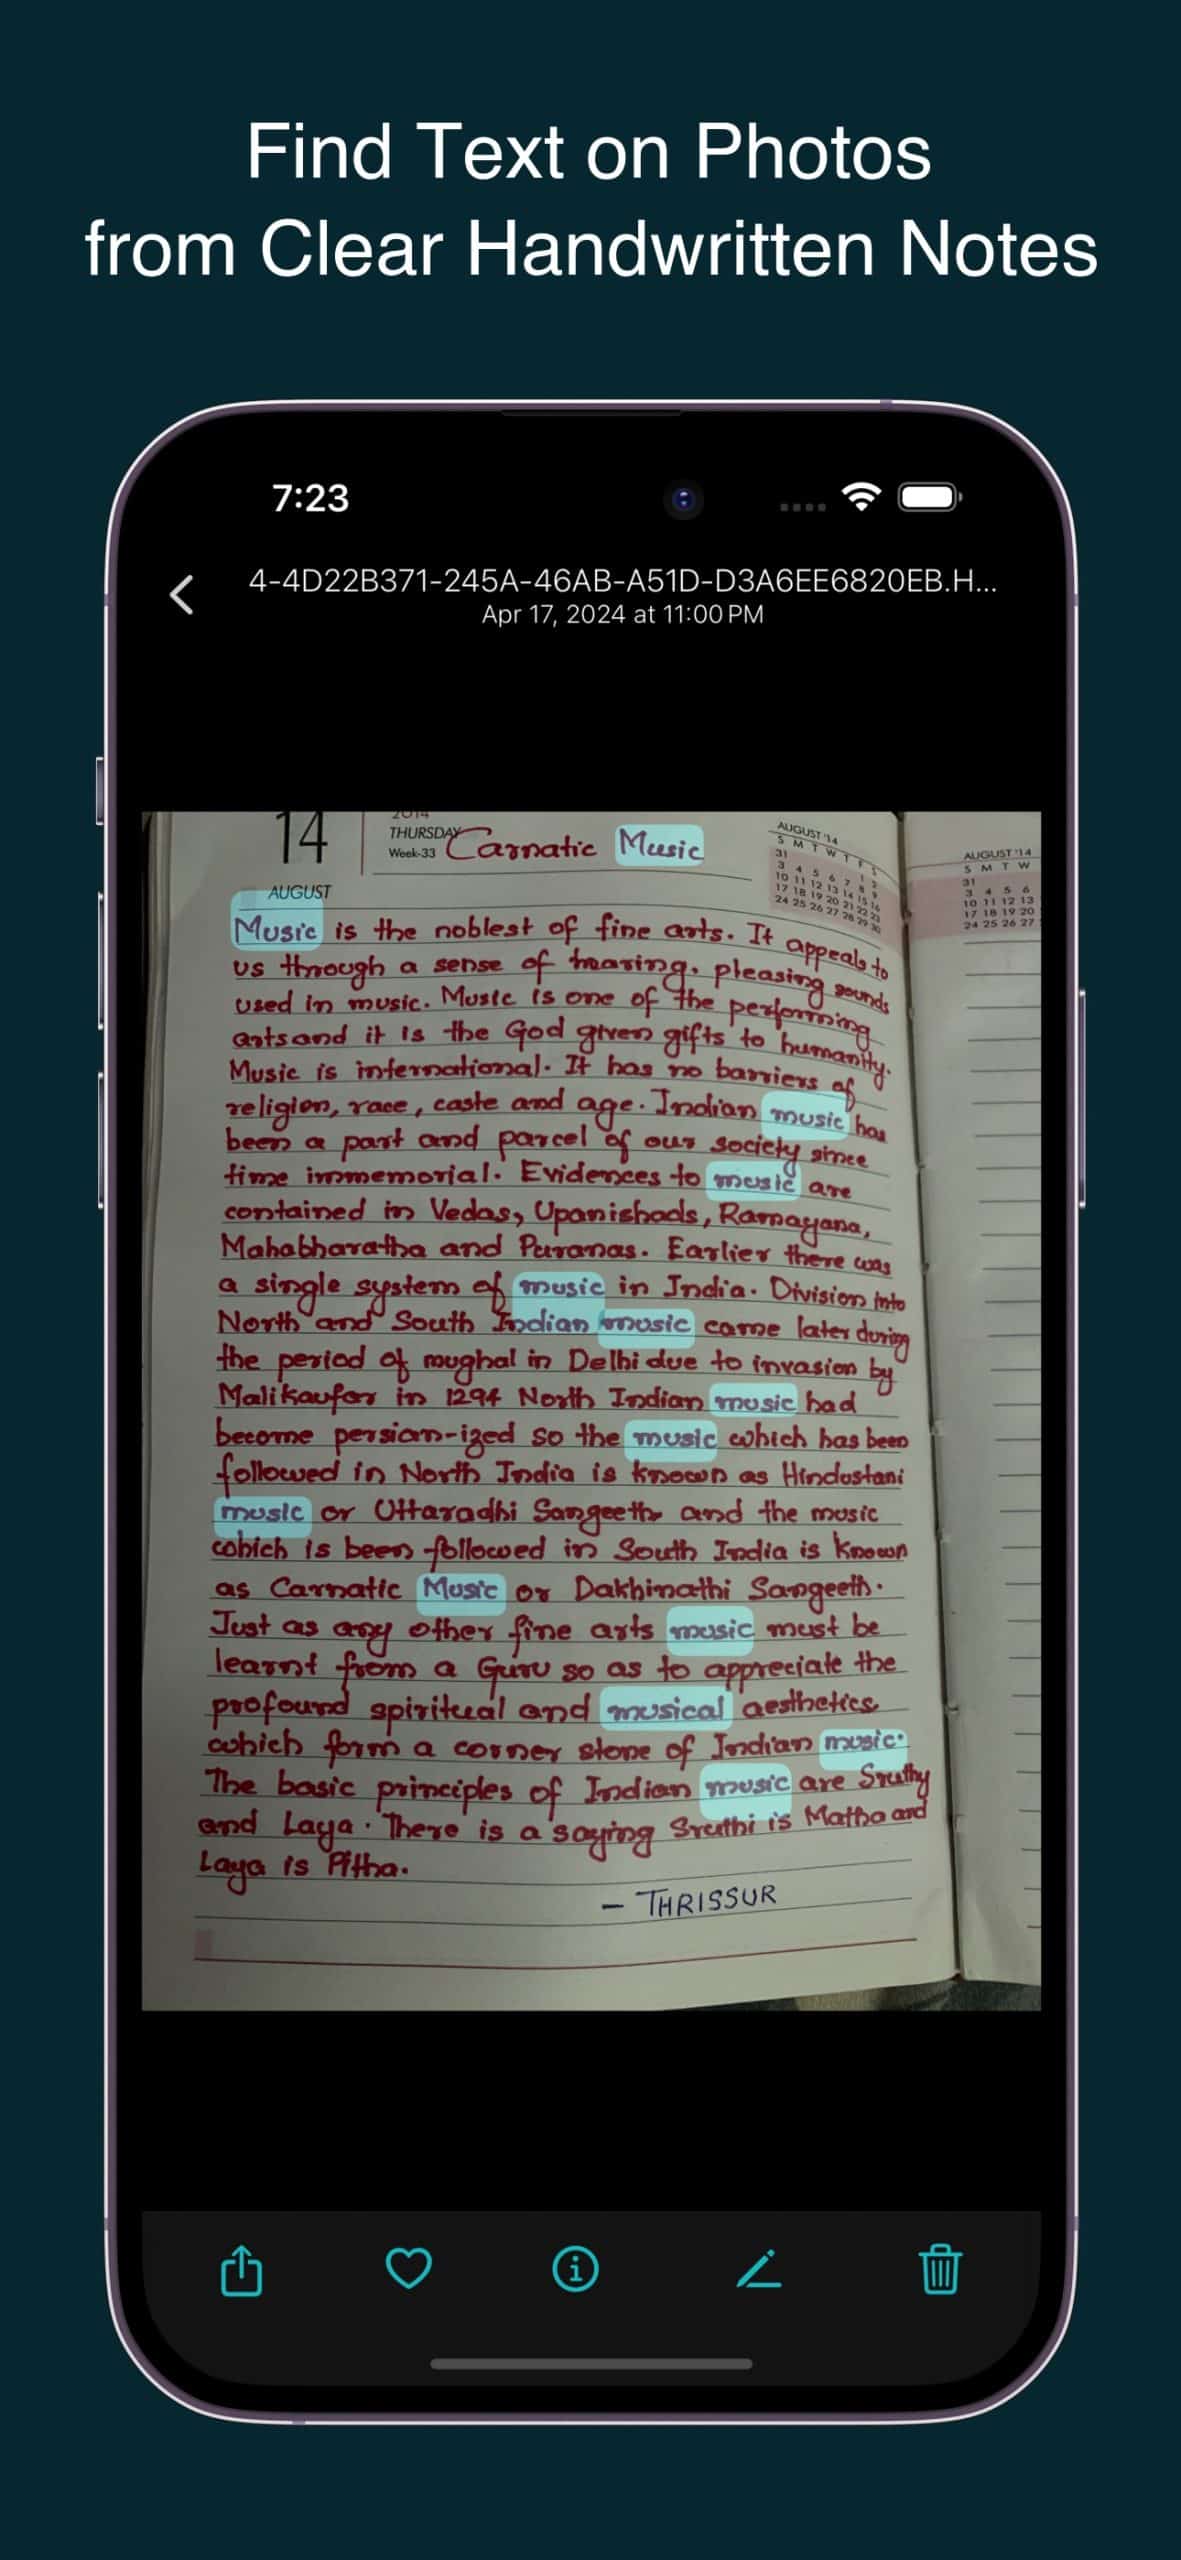 Find Text on Photos
from Clear Handwritten Notes
7:23
4-4D22B371-245A-46AB-A51D-D3A6EE6820EB.H...
Apr 17, 2024 at 11:00 PM
14
2014
THURSDAY
Week-33
Carnatic Music
AUGUST
AUGUST '14
S M T W T F S
31 1 2
3 4 5 6 7 8 9
10 11 12 13 14 15 16
17 18 19 20 21 22 23
24 25 26 27 28 29 30
AUGUST '14
S M T W
31
3 4 5 6
10 11 12 13
17 18 19 20
24 25 26 27
Music is the noblest of fine arts. It appeals to
us through a sense of hearing, pleasing sounds
used in music. Music is one of the performing
arts and it is the God given gifts to humanity.
Music is international. It has no barriers of
religion, race, caste and age. Indian music has
been a part and parcel of our society since
time immemorial. Evidences to music are
contained in Vedas, Upanishads, Ramayana,
Mahabharatha and Puranas. Earlier there was
a single system of music in India. Division into
North and South Indian music came later during
the period of mughal in Delhi due to invasion by
Malikaufer in 1294 North Indian music had
become persian-ized so the music which has been
followed in North India is known as Hindustani
music or Uttaradhi Sangeeth and the music
which is been followed in South India is known
as Carnatic Music or Dakhinathi Sangeeth.
Just as any other fine arts music must be
learnt from a Guru so as to appreciate the
profound spiritual and musical aesthetics
which form a corner stone of Indian music.
The basic principles of Indian music are Sruthy
and Laya. There is a saying Sruthi is Matha and
Laya is Pitha.
- THRISSUR